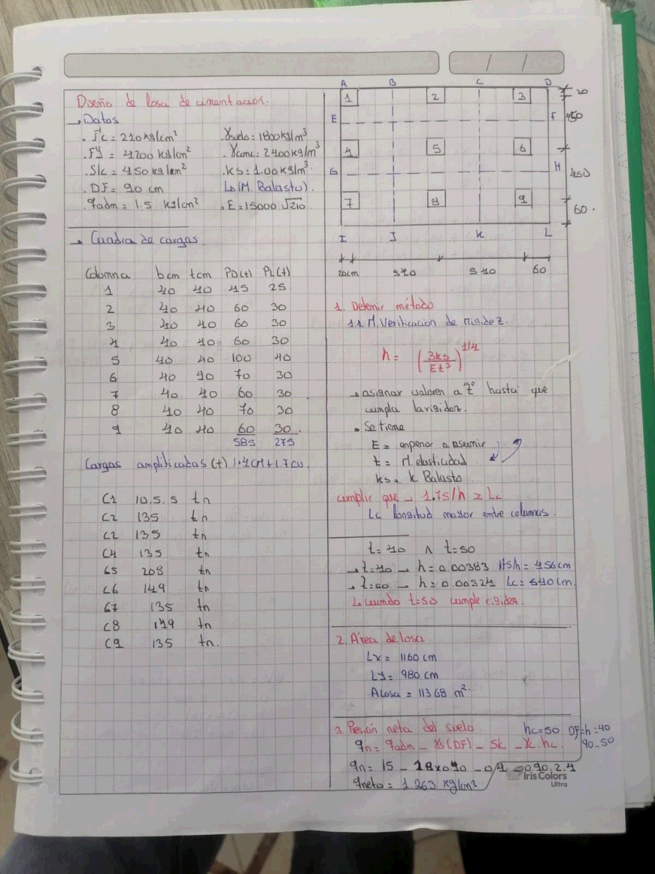 Diseño de losa de cimentación.
→ Datos
. f'c = 210 kg/cm²
. FY = 4200 kg/cm²
. S/c = 450 kg/cm²
. DF = 90 cm
. qadm = 1.5 kg/cm²
. γsuelo = 1800 kg/m³
. γconc = 2400 kg/m³
. ks = 1.00 kg/m³
↳ (M. Balasto).
. E = 15000 √210
→ Cuadra de cargas
Columna b cm t cm PD(t) PL(t)
1 40 40 45 25
2 40 40 60 30
3 40 40 60 30
4 40 40 60 30
5 40 40 100 40
6 40 40 70 30
7 40 40 60 30
8 40 40 70 30
9 40 40 60 30
585 275
Cargas amplificadas (t) 1.4CM+1.7CV.
C1 10.5.5 tn
C2 135 tn
C2 135 tn
C4 135 tn
C5 208 tn
C6 149 tn
C7 135 tn
C8 149 tn
C9 135 tn.
A B C D
1 2 3
E F
4 5 6
G H
7 8 9
I J K L
20
450
450
60.
20cm 540 540 60
1. Definir método
1.1. M. Verificacion de rigidez.
h = (3ks / Et³)^1/4
→ asignar valores a "t" hasta que
cumpla la rigidez.
. Se tiene
E = empenar a asumir
t = M. elasticidad
ks = k Balasto
cumplir que → 1.75/h ≥ Lc
Lc longitud mayor entre columnas.
t = 40 ∧ t = 50
→ t=40 → h = 0.00383 1.75/h = 456cm
→ t=50 → h = 0.00324 Lc = 540cm.
↳ cuando t=50 cumple rigidez.
2. Área de losa
Lx = 1160 cm
Ly = 980 cm
Alosa = 113.68 m²
3. Presión neta del suelo hc=50 DF=h=40
qn = qadm - γs(DF) - Sk - γc hc. 90-50
qn = 15 - 18x0.40
qneto = 1.263 kg/cm²
Iris Colors
Ultra